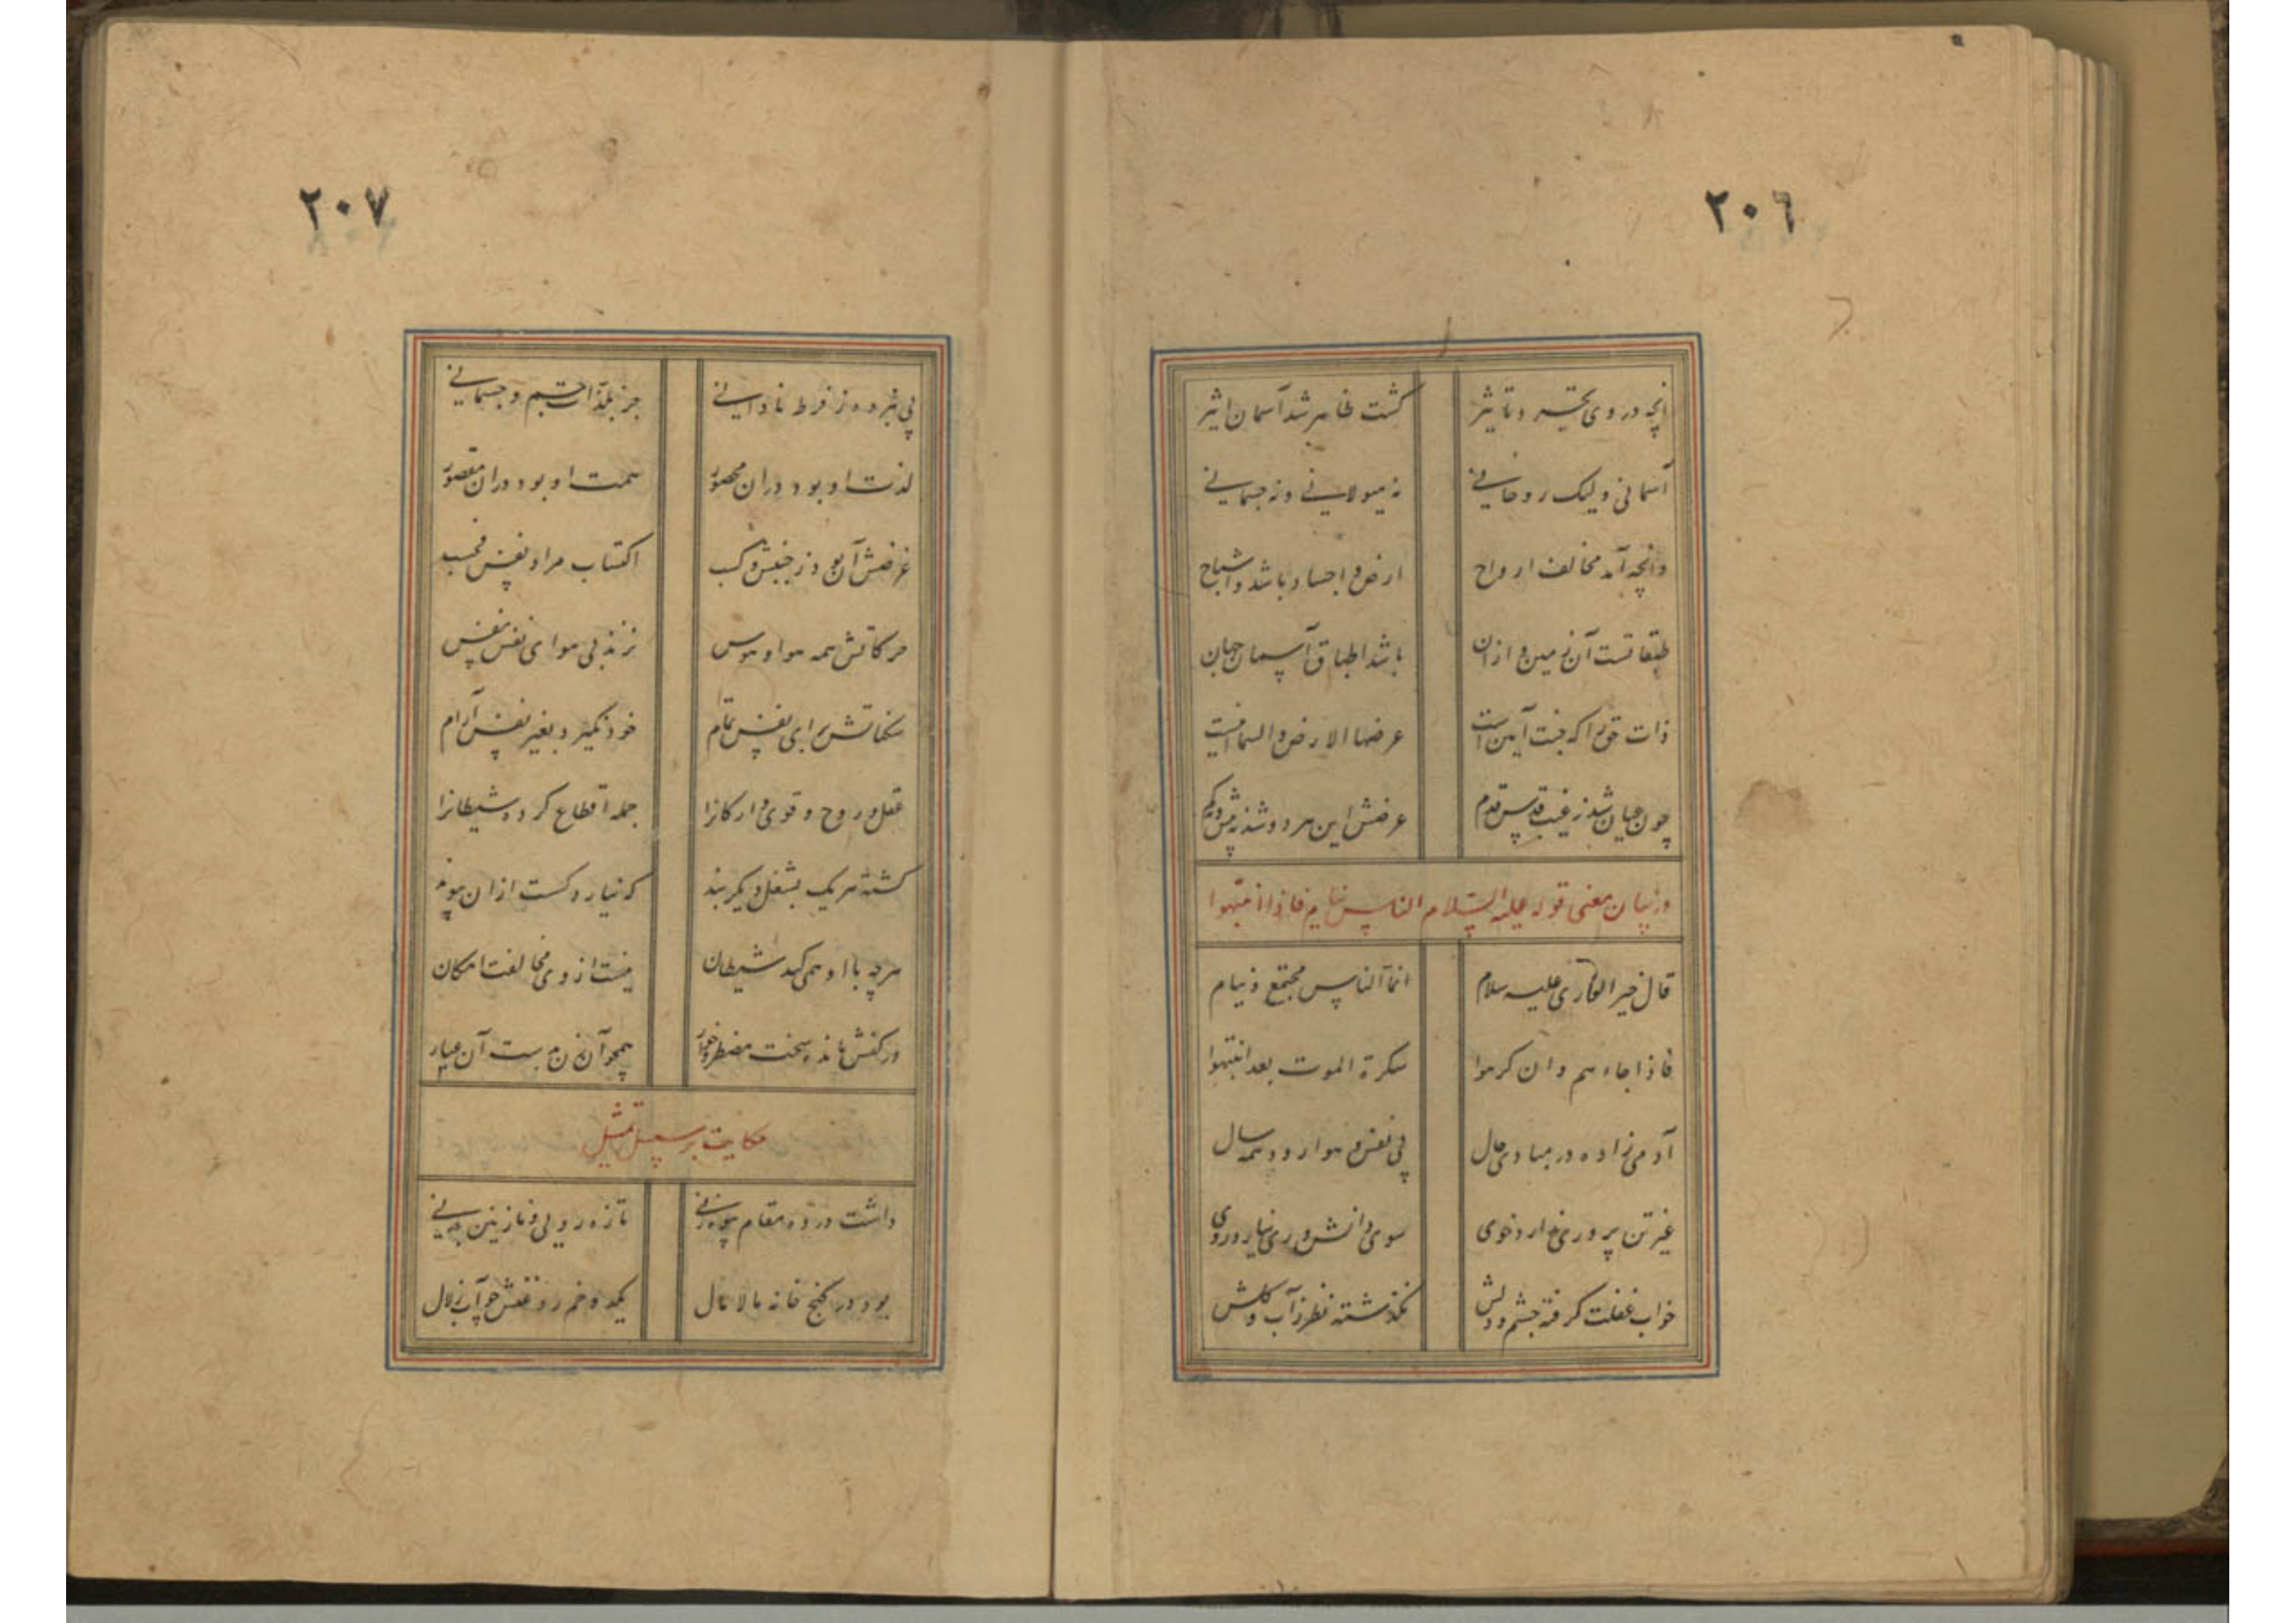 ٢٠٦
آنچه در وی تحیر و تاثیر گشت ظاهر شد آسمان اثیر
آسمانی ولیک روحانی نه هیولانی و نه جسمانی
وانچه آمد مخالف ارواح ارض و اجساد باشد و اشباح
طبقاتست آن زمین و ازان باشد اطباق آسمان جهان
ذات حق را که جنت آیین است عرضها الارض والسما
چون عیان شد ز غیب قدس قدم عرضش این هر دو شد
در بیان معنی قوله علیه السلام الناس نیام فاذا انتبهوا
قال خیر الوری علیه سلام انما الناس مجتمع و نیام
فاذا جاءهم وان کرهوا سکرة الموت بعد انتبهوا
آدمی زاده در مبادی حال پی نفس و هوا رود همه سال
غیر تن پروری ندارد خوی سوی دانش وری نیارد روی
خواب غفلت گرفته چشم و دلش نگذشته نظر ز آب و گلش
٢٠٧
پی نبرده ز فرط نادانی جز بلذات جسم و جسمانی
لذت او بود دران محصور همت او بود دران مقصور
غرضش آن بود ز جنبش و کسب اکتساب مراد نفس فحسب
حرکاتش همه هوا و هوس نزند بی هوای نفس نفس
سکناتش برای نفس تمام خو نگیرد بغیر نفس آرام
عقل و روح و قوی و ارکانرا جمله اقطاع کرده شیطانرا
گشته هر یک بشغل دیگر بند که نیارد گسست ازان پیوند
هر چه با او همی کند شیطان نیست از وی مخالفت امکان
در کفش مانده سخت مضطر و خوار همچو آن زن بدست آن عیار
حکایت بر سبیل تمثیل
داشت در ده مقام بیوه زنی تازه رویی و نازنین بدنی
بود در کنج خانه بالامال یکدو خم روغنش چو آب زلال